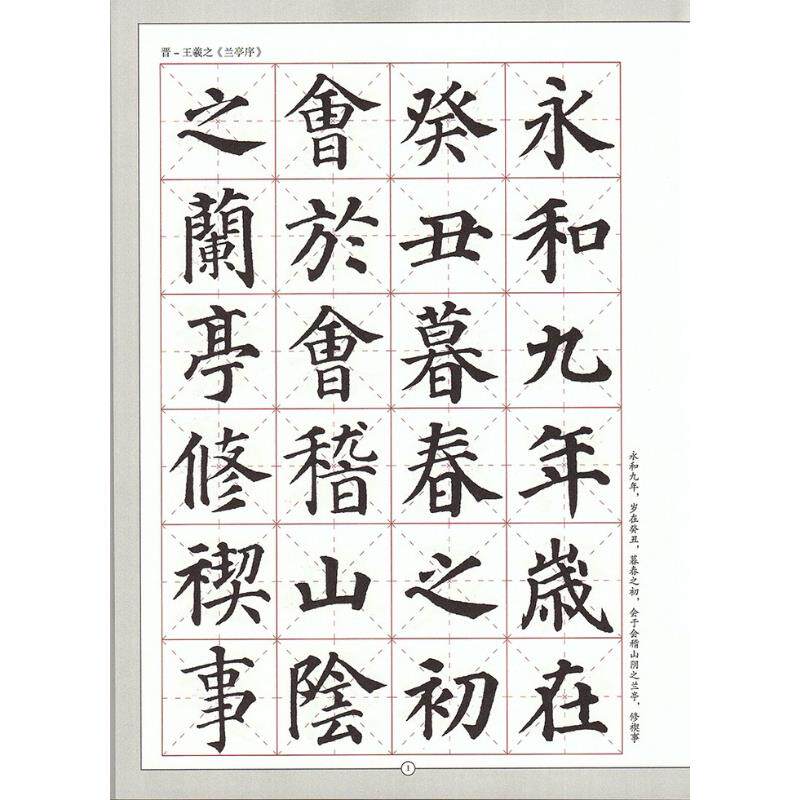 晋-王羲之《兰亭序》
永和九年歲在
癸丑暮春之初
會於會稽山陰
之蘭亭修禊事
永和九年，岁在癸丑，暮春之初，会于会稽山阴之兰亭，修禊事
1